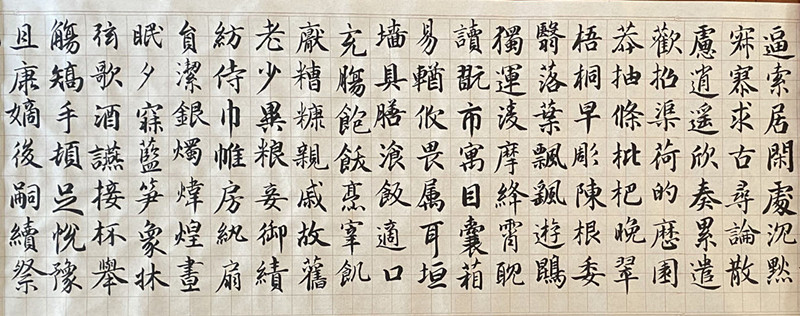 逼索居閑處沉默
寂寥求古尋論散
慮逍遥欣奏累遣
歡招渠荷的歷園
莽抽條枇杷晚翠
梧桐早彫陳根委
翳落葉飄颻遊鵾
獨運淩摩絳霄耽
讀翫市寓目囊箱
易輶攸畏属耳垣
墻具膳飡飯適口
充膓飽飫烹宰飢
厭糟糠親戚故舊
老少異粮妾御績
紡侍巾帷房紈扇
貟潔銀燭煒煌晝
眠夕寐藍笋象牀
弦歌酒讌接杯舉
觴矯手頓足悅豫
且康嫡後嗣續祭